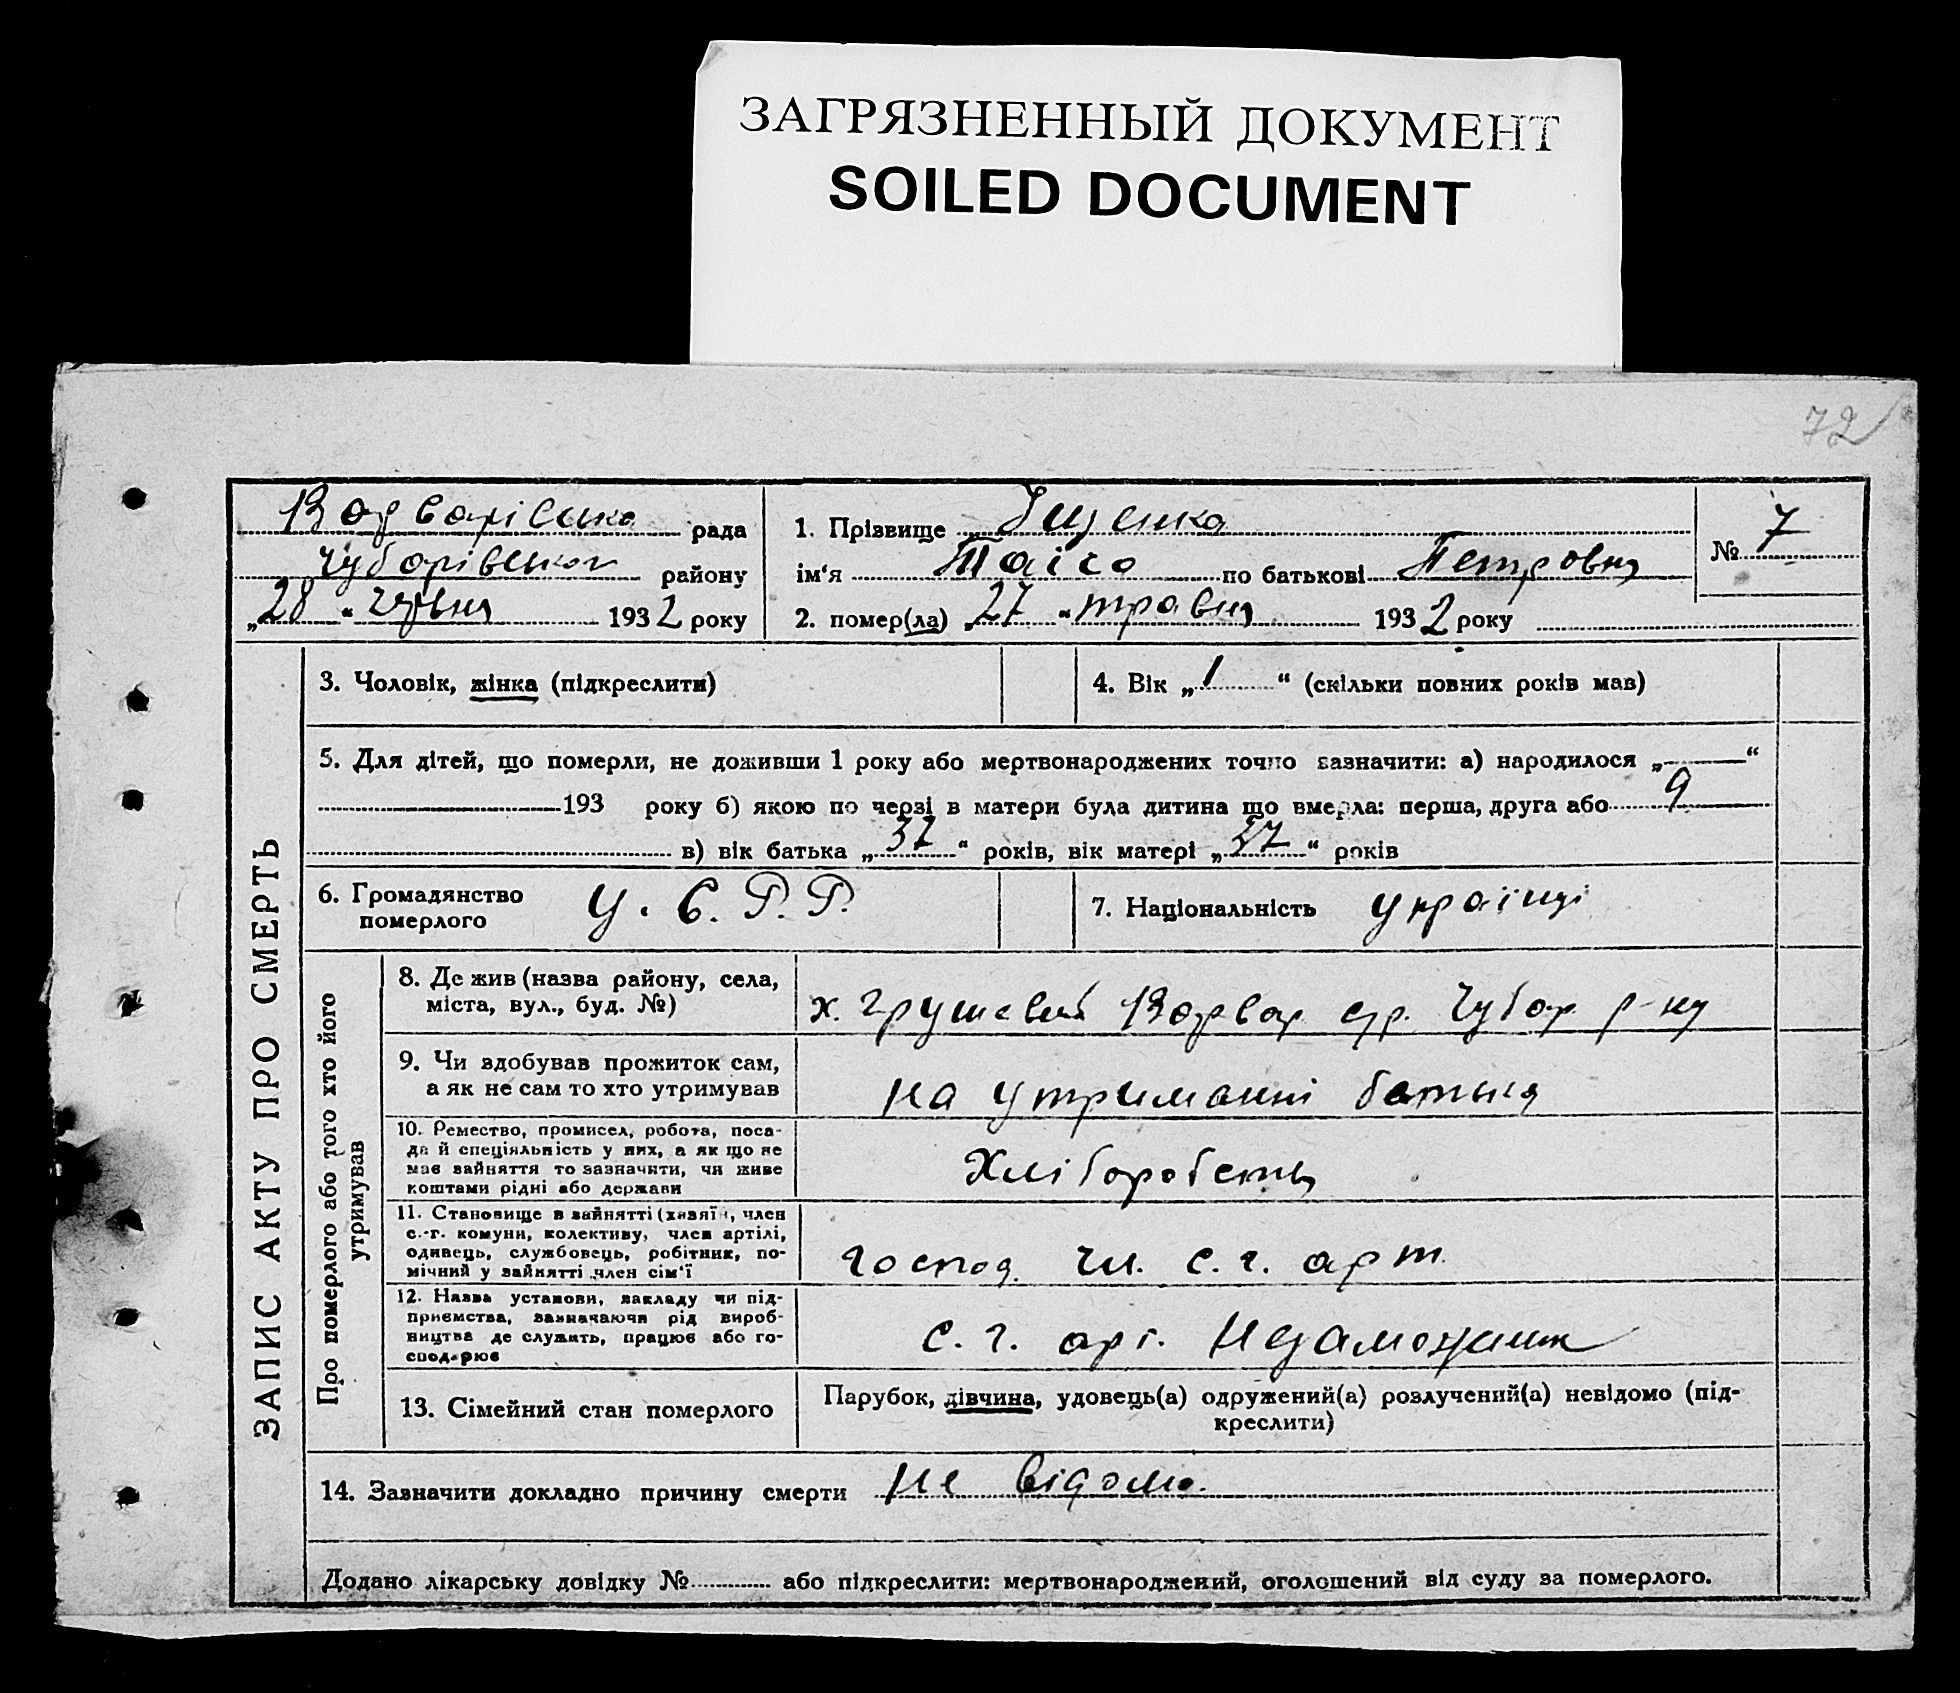 ЗАГРЯЗНЕННЫЙ ДОКУМЕНТ
SOILED DOCUMENT
72
Варварівська рада
Чубарівськог району
„28“ червня 1932 року
1. Прізвище Іщенко
ім‘я Таіса по батькові Петровна
2. помер(ла) „27“ травня 1932 року
№ 7
ЗАПИС АКТУ ПРО СМЕРТЬ
3. Чоловік, жінка (підкреслити)
4. Вік „1“ (скільки повних років мав)
5. Для дітей, що померли, не доживши 1 року або мертвонароджених точно зазначити: а) народилося „—“
193 року б) якою по черзі в матери була дитина що вмерла: перша, друга або 9
в) вік батька „37“ років, вік матері „37“ років
6. Громадянство померлого У. С. Р. Р.
7. Національність українці
Про померлого або того хто його утримував
8. Де жив (назва району, села,
міста, вул., буд. №)
х. Грушевий Варвар с/р. Чубар р-ну
9. Чи здобував прожиток сам,
а як не сам то хто утримував
на утриманні батька
10. Ремество, промисел, робота, поса-
да й спеціяльність у них, а як що не
має зайняття то зазначити, чи живе
коштами рідні або держави
Хліборобств
11. Становище в зайнятті (хазяїн, член
с.-г. комуни, колективу, член артілі,
одивець, службовець, робітник, по-
мічний у зайнятті член сім‘ї
господ. чл. с. г. арт.
12. Назва установи, закладу чи під-
приємства, зазначаючи рід вироб-
ництва де служить, працює або го-
сподарює
с. г. арт. Незаможник
13. Сімейний стан померлого
Парубок, дівчина, удовець(а) одружений(а) розлучений(а) невідомо (під-
креслити)
14. Зазначити докладно причину смерти не відомо.
Додано лікарську довідку № або підкреслити: мертвонароджений, оголошений від суду за померлого.